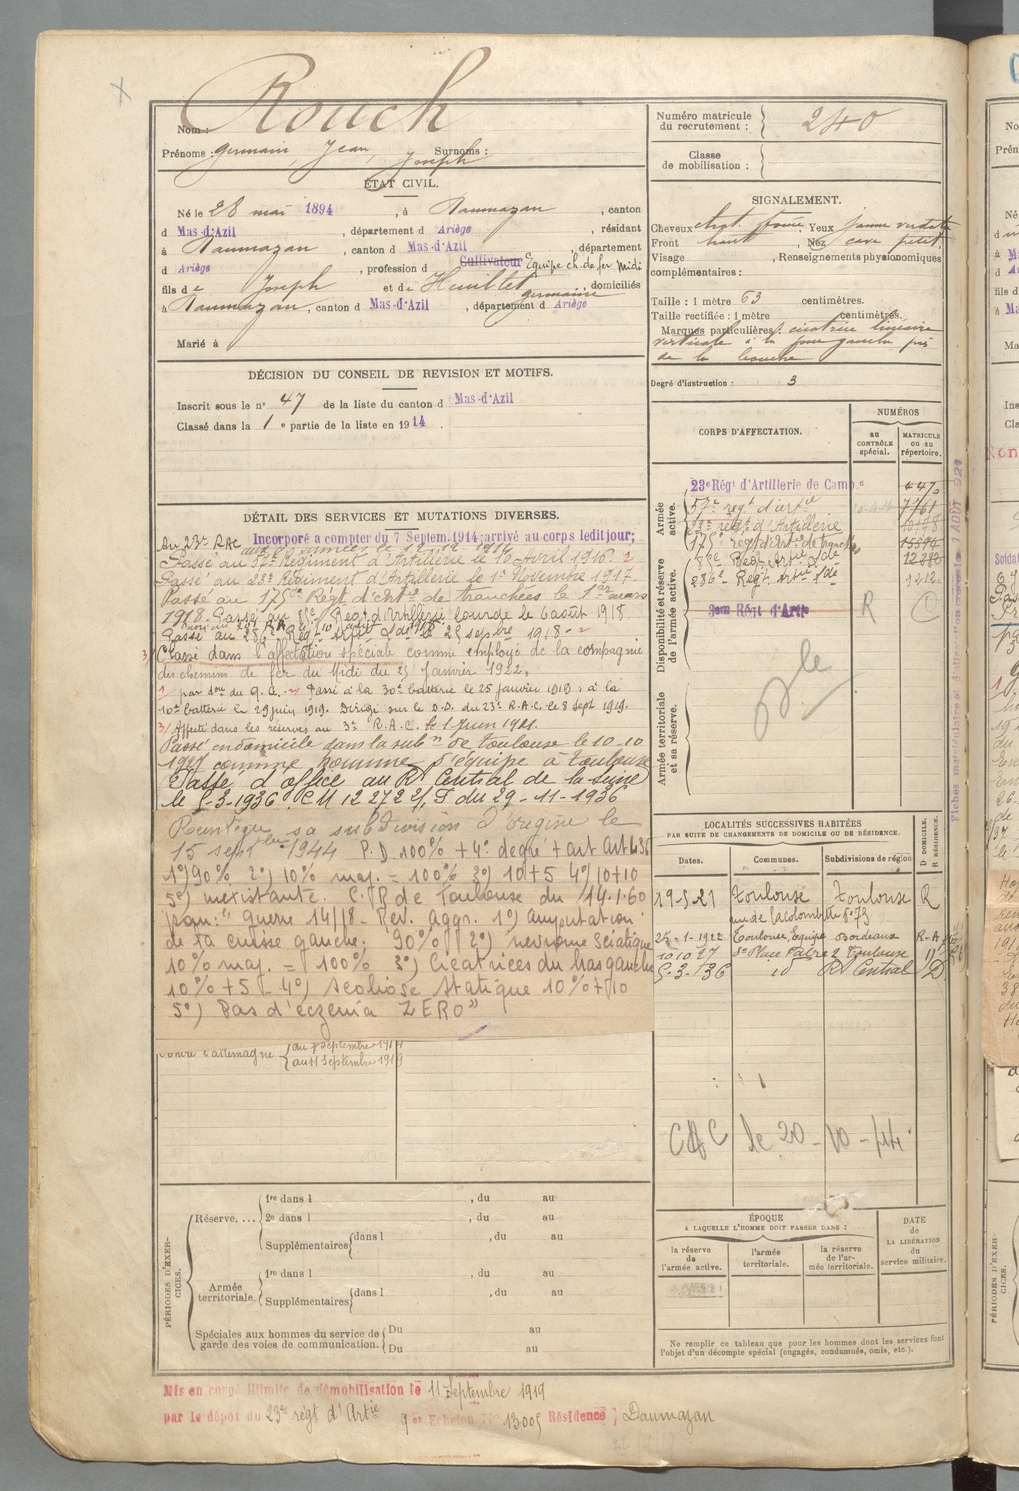 Nom : Rouch
Prénoms : Germain Jean Joseph Surnoms :
Numéro matricule du recrutement : 240
Classe de mobilisation :
ÉTAT CIVIL.
Né le 28 mai 1894, à Daumazan, canton
d Mas-d'Azil, département d Ariège, résidant
à Daumazan, canton d Mas-d'Azil, département
d Ariège, profession d Cultivateur Equipe ch. de fer Midi
fils de Joseph et de germaine, domiciliés
à Daumazan, canton d Mas-d'Azil, département d Ariège
Marié à
SIGNALEMENT.
Cheveux chat. foncé, Yeux jaune verdatre
Front haut, Nez cave petit
Visage , Renseignements physionomiques
complémentaires :
Taille : 1 mètre 63 centimètres.
Taille rectifiée : 1 mètre centimètres.
Marques particulières : cicatrice linéaire
verticale à la joue gauche près
de la bouche
Degré d'instruction : 3
DÉCISION DU CONSEIL DE REVISION ET MOTIFS.
Inscrit sous le n° 47 de la liste du canton d Mas-d'Azil
Classé dans la 1 e partie de la liste en 1914.
DÉTAIL DES SERVICES ET MUTATIONS DIVERSES.
Incorporé à compter du 7 Septem. 1914; arrivé au corps ledit jour;
Au 23e RAC
Passé au 57e Régiment d'Artillerie le 12 Avril 1916. 1
Passé au 23e Régiment d'Artillerie le 1er Novembre 1917.
Passé au 175e Régt d'Artie de tranchées le 1er mars
1918. Passé au Régt d'Artillerie lourde le 6 août 1918.
Passé au 286e Régt Artie Lde le 25 sepbre 1918 - 2
3/ Classé dans l'affectation spéciale comme employé de la compagnie
des chemins de fer du Midi du 25 Janvier 1922.
1 par don du G. Q. 2/ Passé à la 30e batterie le 25 janvier 1919, à la
10e batterie le 29 juin 1919. Dirigé sur le D.D. du 23e R.A.C. le 8 sept 1919.
3/ Affecté dans les réserves au 3e R.A.C. le 1 Juin 1921.
Passé en domicile dans la subon de Toulouse le 10-10
1927 comme homme d'équipe à Toulouse
Passé d'office au Rt Central de la Seine
le 5-3-1936. CM 12272 2/ du 29-11-1936
Réintègre sa subdivision d'origine le
15 septbre 1944 P.D. 100% + 4e degré + art
1°) 90% 2°) 10% maj. = 100% 3°) 10+5 4°) 10+10
5°) inexistante. C.R de Toulouse du 14.1.60
pour : " Guerre 14/18 - Rev. Aggr. 1°) amputation
de la cuisse gauche; 90% 2°) nevrome sciatique
10% maj. = 100% 3°) Cicatrices du bras gauche
10% + 5 - 4°) Scoliose statique 10% + 10
5°) Pas d'eczéma ZERO"
contre l'allemagne du 7 Septembre 1914
au 11 Septembre 1919
CORPS D'AFFECTATION.
NUMÉROS
au CONTRÔLE spécial.
MATRICULE ou au répertoire.
Armée active.
23e Régt d'Artillerie de Campe
57e régt d'artie 7761
23e régt d'Artillerie
175e régt d'Art de tranchées
Disponibilité et réserve de l'armée active.
Régt Artie Lde
286e Régt Artie Lde 1212
3em Régt d'Artie R C
Armée territoriale et sa réserve.
LOCALITÉS SUCCESSIVES HABITÉES
PAR SUITE DE CHANGEMENTS DE DOMICILE OU DE RÉSIDENCE.
Dates. Communes. Subdivisions de région D DOMICILE. R RÉSIDENCE.
19-5-21 Toulouse Toulouse R
rue de Lacolombette n° 73
25-1-1922 Toulouse, Equipe Bordeaux R-A
10.10 27 Place Fabre 2 Toulouse
5-3-36 id R Central D
le 20-10-
PÉRIODES D'EXERCICES.
Réserve. ... 1re dans l , du au
2e dans l , du au
Supplémentaires dans l , du au
Armée territoriale. 1re dans l , du au
Supplémentaires dans l , du au
Spéciales aux hommes du service de garde des voies de communication. Du au
Du au
ÉPOQUE
A LAQUELLE L'HOMME DOIT PASSER DANS :
la réserve de l'armée active.
l'armée territoriale.
la réserve de l'armée territoriale.
DATE de LA LIBÉRATION du service militaire.
Ne remplir ce tableau que pour les hommes dont les services font
l'objet d'un décompte spécial (engagés, condamnés, omis, etc.).
Mis en congé illimité de démobilisation le 11 Septembre 1919
par le dépôt du 23e régt d'Artie 9 e Echelon N° 13005 Résidence ; Daumazan